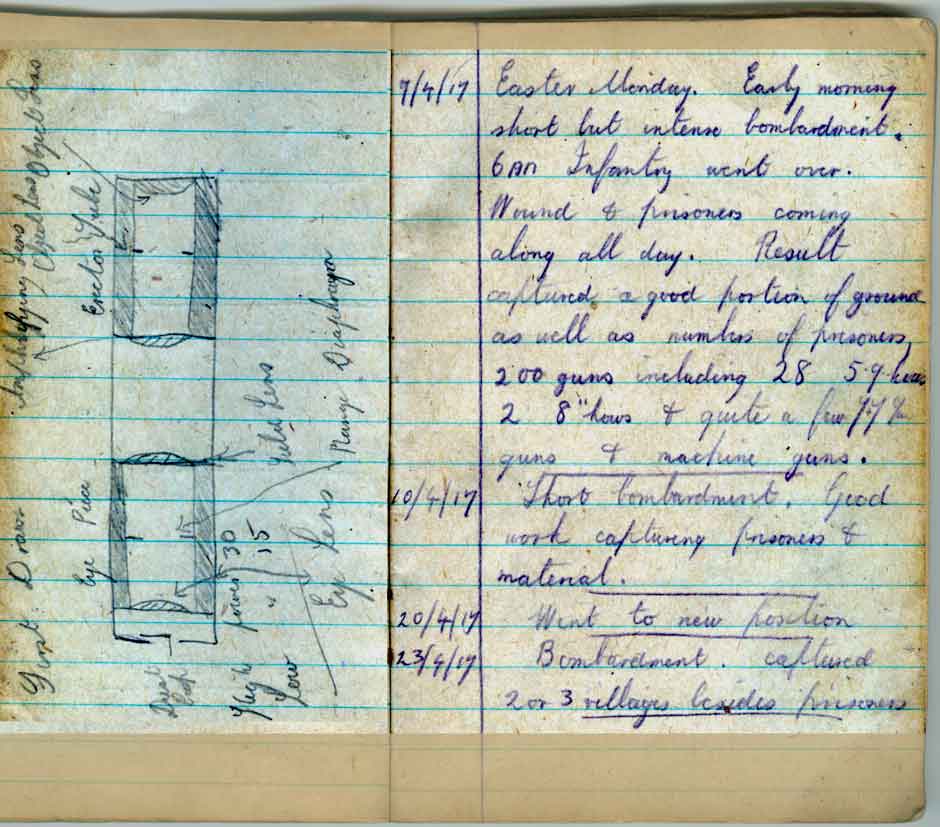 First Draw
Amplifying Lens
Eye Piece
Erector Tube
Cap
High power 30
Low " 15
Field Lens
Eye Lens
Range Diaphragm
7/4/17 Easter Monday. Early morning
short but intense bombardment.
6 AM Infantry went over.
Wound & prisoners coming
along all day. Result
captured a good portion of ground
as well as numbers of prisoners,
200 guns including 28 5.9 hows
2 8" hows & quite a few 7.7
guns & machine guns.
10/4/17 Short bombardment. Good
work capturing prisoners &
material.
20/4/17 Went to new position
23/4/17 Bombardment. captured
2 or 3 villages besides prisoners